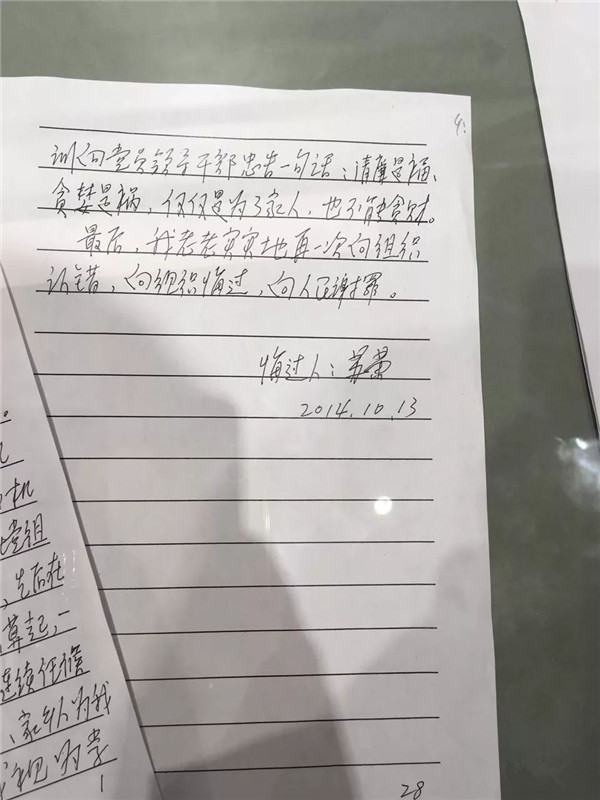 训向党员领导干部忠告一句话：清廉是福、
贪婪是祸，仅仅是为了家人，也不能贪财。
最后，我老老实实地再一次向组织
认错，向组织悔过，向人民谢罪。
悔过人：苏荣
2014.10.13
28
。
机
党组
、先后在
算起，一
连续任福
、家乡人为我
视为学
1